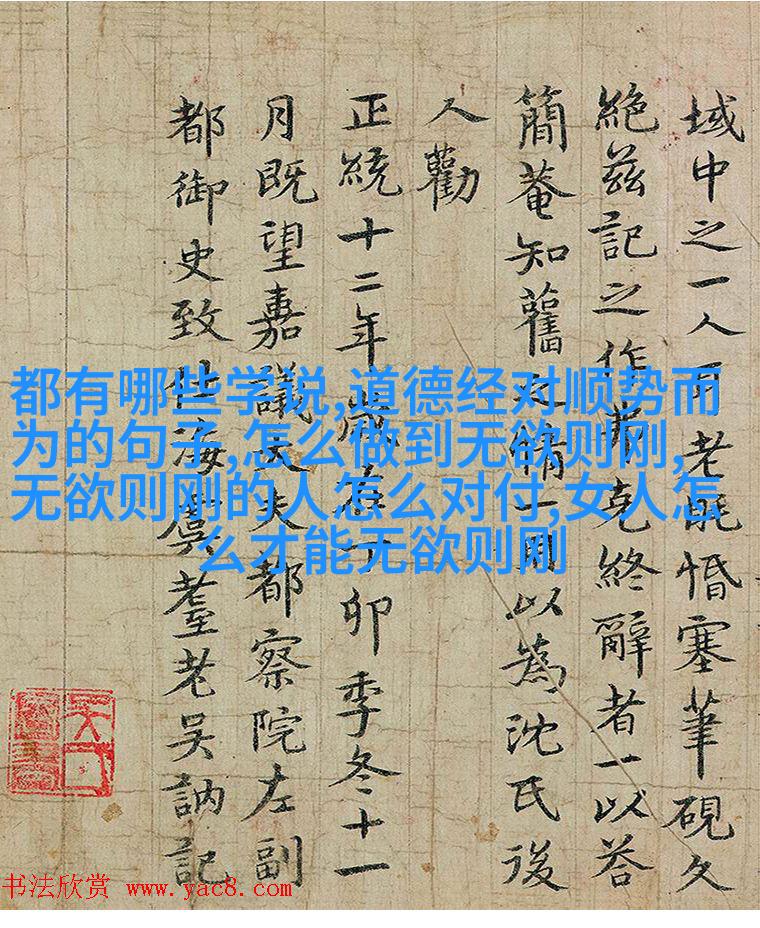 域中之一人耳老既惛塞筆硯久
絶茲記之作弗克終辭者一以荅
簡菴知舊之情一用以為沈氏後
人勸
正統十二年歲在丁卯季冬十一
月既望嘉議大夫都察院左副
都御史致仕海虞耄老吳訥記
都有哪些学说,道德经对顺势而
为的句子,怎么做到无欲则刚,
无欲则刚的人怎么对付,女人怎
么才能无欲则刚
书法欣赏 www.yac8.com